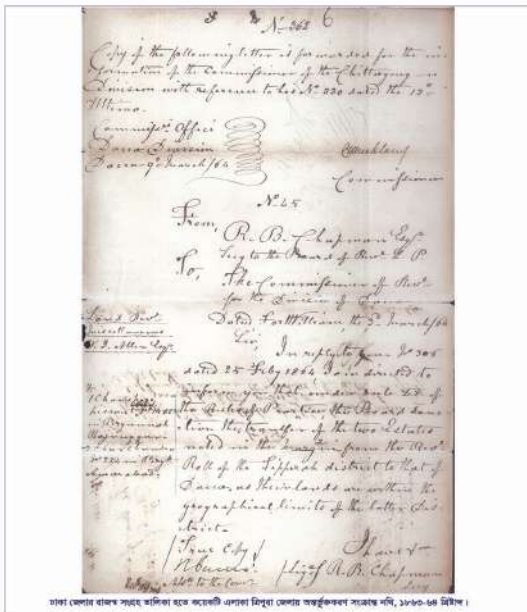 No 262
Copy of the following letter is forwarded for the in-
formation of the Commissioner of the Chittagong
Division with reference to his No 230 dated the 12th
Ultimo.
Commissrs Office
Dacca Division
Dacca 9 March/64
Commissioner
No 45
From,
R. B. Chapman Esqr
Secy to the Board of Revr L. P.
To,
The Commissioner of Revr
for the Division of Dacca
Dated Fort William, the 3 March/64
Land Revr
Miscellaneous
Sir,
In reply to your No 306
dated 25 Feby 1864 I am directed to
inform you that under rule of
the Rules of Practice the Board sanc-
tion the transfer of the two Estates
noted in the margin from the Revr
Roll of the Tipperah district to that of
Dacca, as their lands are within the
geographical limits of the latter Dis-
trict.
True Copy
I have &
Sigd R. B. Chapman
Secy
ঢাকা জেলার রাজস্ব সংগ্রহ তালিকা হতে কয়েকটি এলাকা ত্রিপুরা জেলায় অন্তর্ভুক্তকরণ সংক্রান্ত নথি, ১৮৬৩-৬৪ খ্রিষ্টাব্দ।